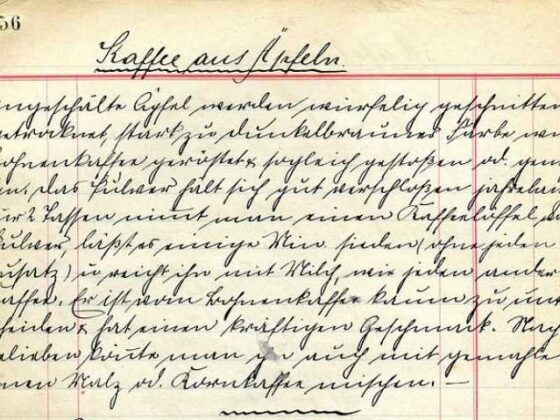 56
Kaffee aus Äpfeln.
ngeschälte Äpfel werden würfelig geschnitten
etrocknet, stark zu dunkelbrauner Farbe wie
ohnenkaffee geröstet & sogleich gestoßen od. gem
en. Das Pulver hält sich gut verschloßen jahrela
ür 2 Tassen nimt man einen Kaffeelöffel
ulver, läßt es einige Min. sieden (ohne jeden
usatz) u. reicht ihn mit Milch, wie jeden ander
affee. Er ist vom Bohnenkaffee kaum zu un
heiden & hat einen kräftigen Geschmack. Nach
elieben könte man ihn auch mit gemahle
nen Malz od. Kornkaffee mischen. —